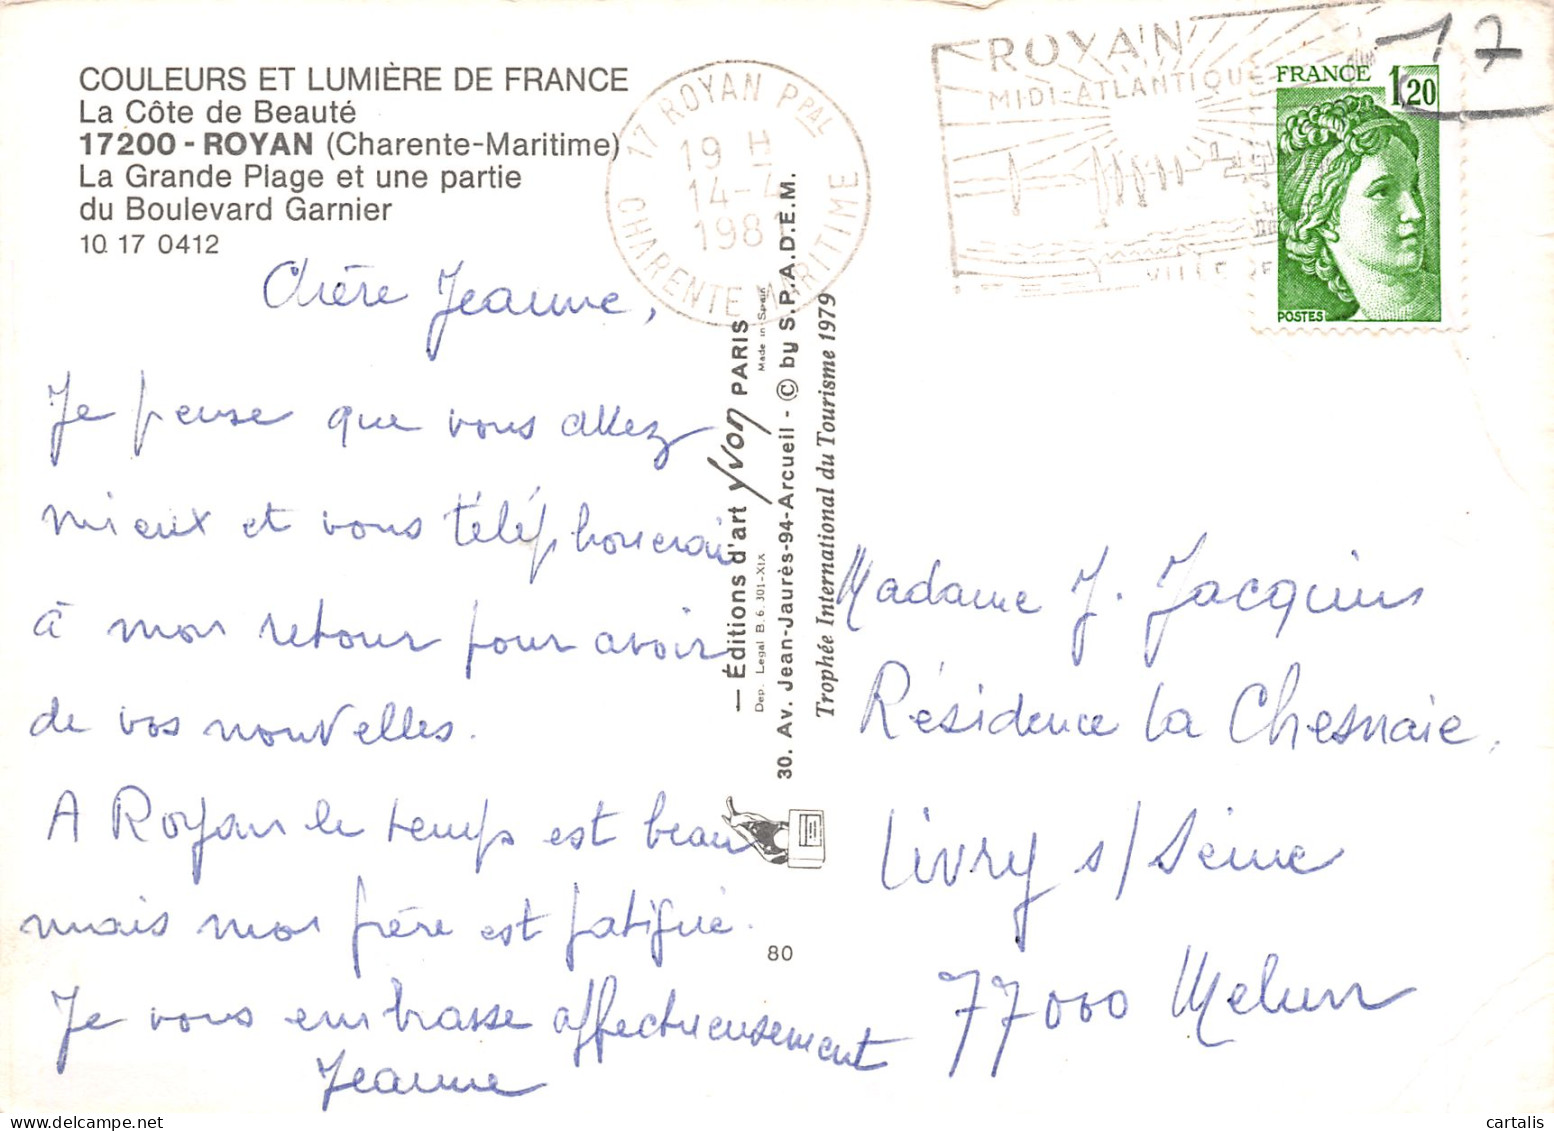 COULEURS ET LUMIÈRE DE FRANCE
La Côte de Beauté
17200 - ROYAN (Charente-Maritime)
La Grande Plage et une partie
du Boulevard Garnier
10 17 0412
Chère Jeanne,
Je pense que vous allez
mieux et vous téléphonerai
à mon retour pour avoir
de vos nouvelles.
A Royan le temps est beau
mais mon frère est fatigué.
Je vous embrasse affectueusement
Jeanne
17 ROYAN PPAL
19 H
14-4
1981
CHARENTE MARITIME
— Éditions d'art yvon PARIS
Made in Spain
Dep. Legal B. 6.301-XIX
30. Av. Jean-Jaurès-94-Arcueil - © by S.P.A.D.E.M.
Trophée International du Tourisme 1979
80
ROYAN
MIDI-ATLANTIQUE
VILLE DE
FRANCE 1,20
POSTES
17
Madame J. Jacquins
Résidence la Chesnaie.
Livry s/Seine
77000 Melun
cartalis